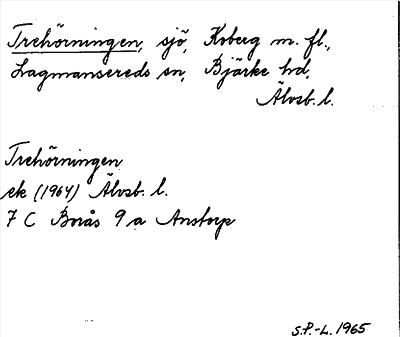 Trehörningen, sjö, Koberg m. fl.,
Lagmansereds sn, Bjärke hd,
Älvsb. l.
Trehörningen
ek (1964) Älvsb. l.
7 C Borås 9 a Anstorp
S.P.-L. 1965